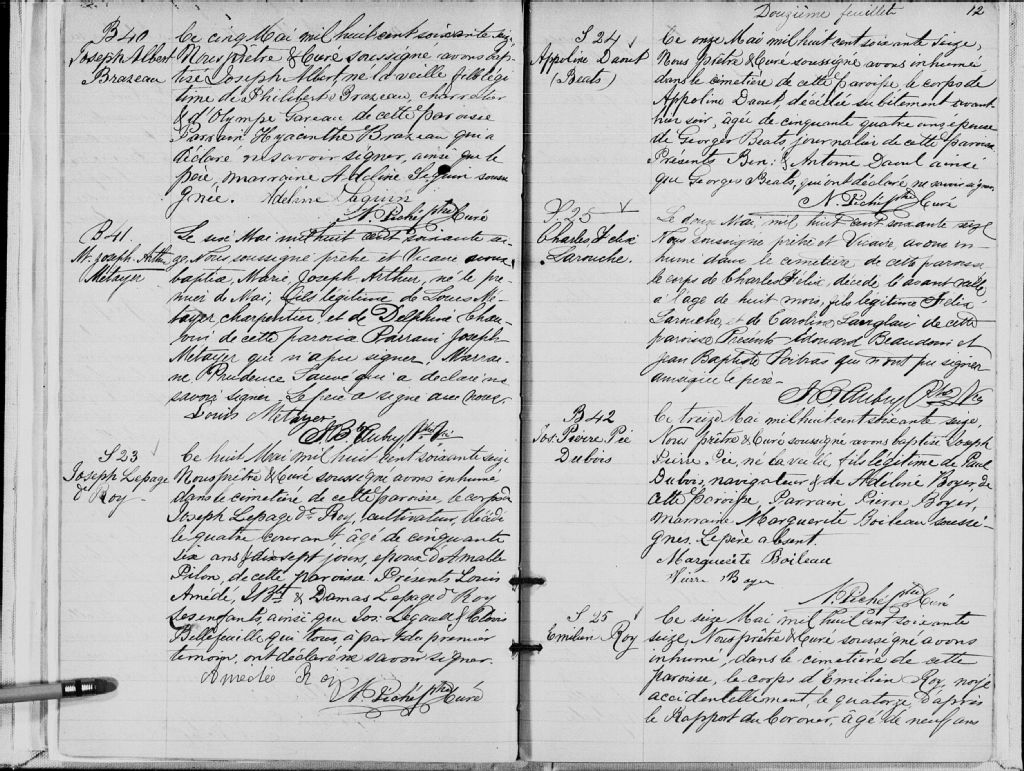 B 40
Joseph Albert
Brazeau
Ce cinq Mai mil huit cent soixante seize
Nous prêtre & Curé soussigné avons bap-
tisé Joseph Albert né la veille fils légi-
time de Philibert Brazeau, charretier
& d'Olympe Gareau de cette paroisse
Parrain Hyacinthe Brazeau qui a
déclaré ne savoir signer, ainsi que le
père, marraine Adeline Seguin sous-
gnée. Adeline Seguin
N. Piché ptre Curé
B 41
M. Joseph Arthur
Métayer
Le six Mai mil huit cent soixante sei-
ze, Nous soussigné prêtre et Vicaire avons
baptisé, Marie Joseph Arthur, né le pre-
mier de Mai, fils légitime de Louis Mé-
tayer charpentier et de Delphine
de cette paroisse Parrain Joseph
Métayer qui n'a pu signer, Marrai-
ne Prudence Sauvé qui a déclaré ne
savoir signer. Le père a signé avec nous.
Louis Métayer
J. Bte Aubry
S 23
Joseph Lepage
dt Roy
Ce huit Mai mil huit cent soixante seize
Nous prêtre & Curé soussigné avons inhumé
dans le cimetière de cette paroisse, le corps de
Joseph Lepage dt Roy, cultivateur, décédé
le quatre courant âgé de cinquante
six ans & dix sept jours, époux d'Amable
Pilon, de cette paroisse. Présents Louis
Amédé, J. Bte & Damas Lepage dt Roy
ses enfants, ainsi que Jos. Légaude & Clovis
Bellefeuille qui tous, à part du premier
temoin, ont déclaré ne savoir signer.
Amedée Roy
N. Piché ptre Curé
Douzième feuillet 12
S 24
Appoline Daoust
(Beats)
Ce onze Mai mil huit cent soixante seize,
Nous prêtre & Curé soussigné avons inhumé
dans le cimetière de cette paroisse, le corps de
Appoline Daout, décédée subitement avant
hier soir, âgée de cinquante quatre ans épouse
de Georges Beats, journalier de cette paroisse
Présents Ben: & Antoine Daout ainsi
que Georges Beats, qui ont déclaré ne savoir signer
N. Piché ptre Curé
S 25
Charles Félix
Larouche.
Le douze Mai, mil huit cent soixante seize
Nous soussigné prêtre et Vicaire avons in-
humé dans le cimetière de cette paroisse
le corps de Charles Félix, décédé l'avant veille
à l'âge de huit mois, fils légitime Félix
Larouche, et de Caroline Langlais de cette
paroisse Présents Edouard Beaudoin et
Jean Baptiste Poitras qui n'ont pu signer
ainsi que le père
J. B. Aubry Ptre Vic
B 42
Jos. Pierre Pie
Dubois
Ce treize Mai mil huit cent soixante seize,
Nous prêtre & Curé soussigné avons baptisé Joseph
Pierre Pie, né la veille, fils légitime de Paul
Dubois, navigateur & de Adeline Boyer de
cette paroisse, Parrain Pierre Boyer,
marraine Marguerite Boileau soussi-
gnés. Le père absent.
Marguerite Boileau
Pierre Boyer
N. Piché ptre Curé
S 25
Emilien Roy
Ce seize Mai mil huit cent soixante
seize, Nous prêtre & Curé soussigné avons
inhumé, dans le cimetière de cette
paroisse, le corps d'Emilien Roy, noyé
accidentellement, le quatorze, d'après
le Rapport du Coroner, agé de neuf ans